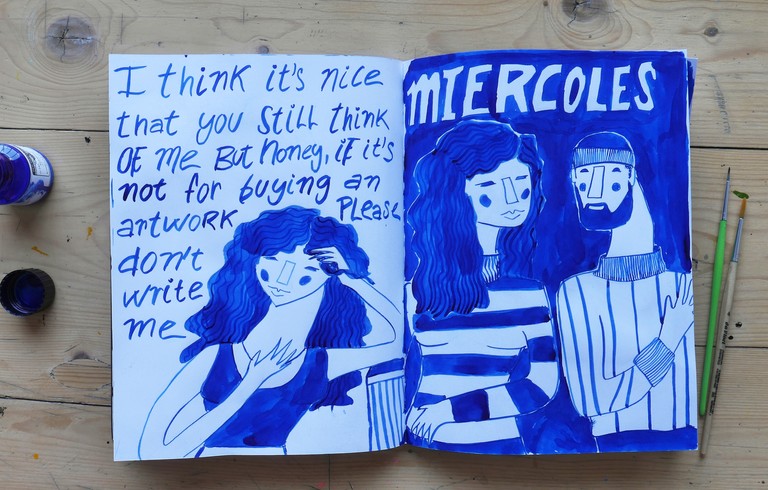 I think it's nice
that you still think
OF me But Honey, iF it's
not for buying an
artwork PLease
don't
write
me
MIERCOLES